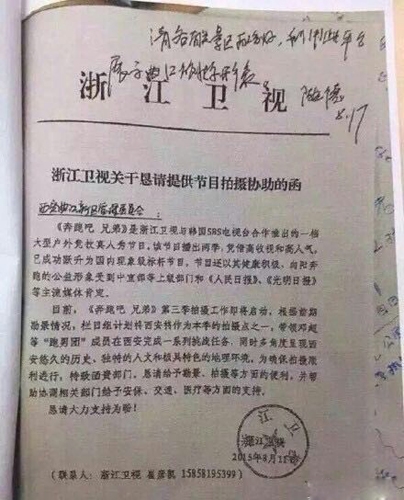 请各
展示曲江的
8.17
浙江卫视
浙江卫视关于恳请提供节目拍摄协助的函
西安曲江新区管理委员会：
《奔跑吧 兄弟》是浙江卫视与韩国SBS电视台合作推出的一档
大型户外竞技真人秀节目，该节目播出两季，凭借高收视和高人气，
已成功跃升为国内现象级标杆节目。节目还以其健康积极、向阳奔
跑的公益形象受到中宣部等上级部门和《人民日报》、《光明日报》
等主流媒体肯定。
目前，《奔跑吧 兄弟》第三季拍摄工作即将启动，根据前期
勘景情况，栏目组计划将西安特作为本季的拍摄点之一，带领邓超
等“跑男团”成员在西安完成一系列挑战任务，同时多角度呈现西
安悠久的历史、独特的人文和极具特色的地理环境。为确保拍摄顺
利进行，特致函贵部门，恳请给予勘景、拍摄等方面的便利，并帮
助协调相关部门给予安保、交通、医疗等方面的支持。
恳请大力支持为盼！
浙江卫视
2015年8月11日
（联系人：浙江卫视 崔彦凯 15858195399）